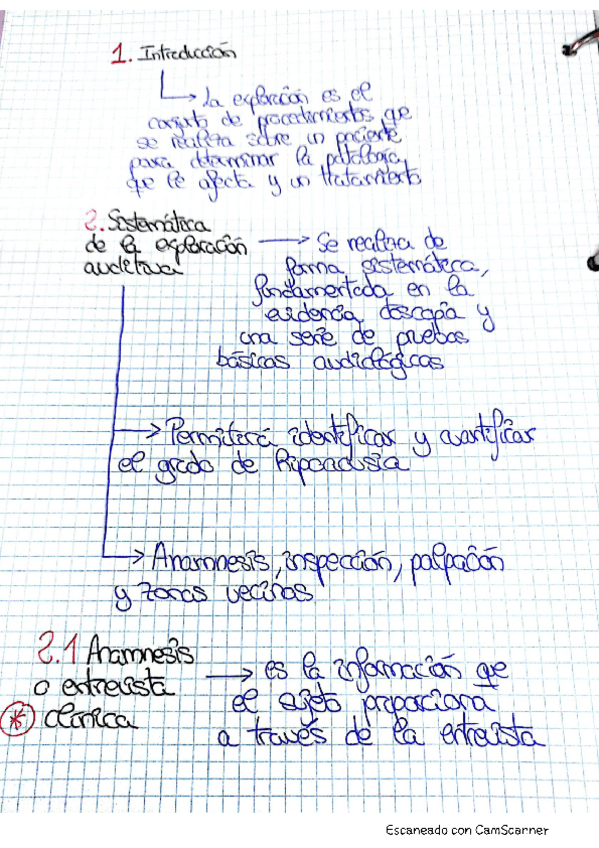 1. Introducción
La exploración es el
conjunto de procedimientos que
se realiza sobre un paciente
para determinar la patología
que le afecta y un tratamiento
2. Sistemática
de la exploración
auditiva
Se realiza de
forma sistemática,
fundamentada en la
evidencia, otoscopia y
una serie de pruebas
básicas audiológicas
Permitirá identificar y cuantificar
el grado de hipoacusia
Anamnesis, inspección, palpación
y zonas vecinas
2.1 Anamnesis
o entrevista
* clínica
es la información que
el sujeto proporciona
a través de la entrevista
Escaneado con CamScanner